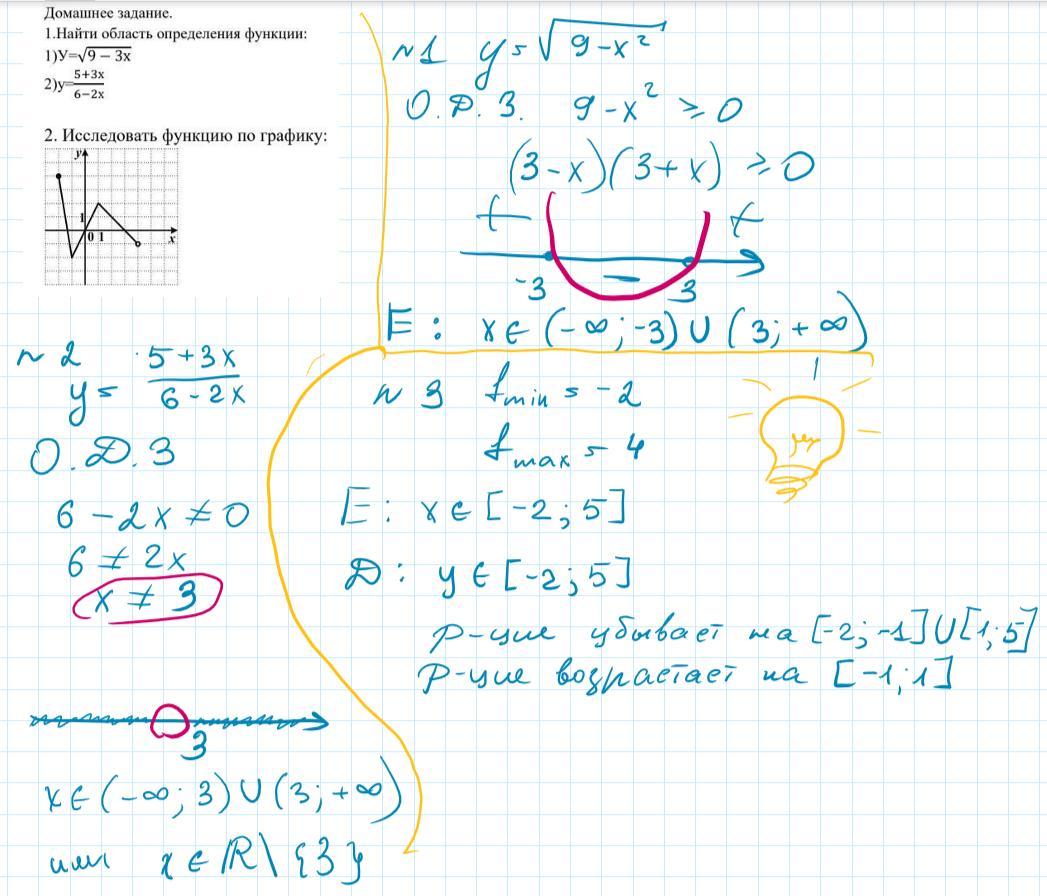 Домашнее задание.
1.Найти область определения функции:
1)У=√9 − 3x
2)у=5+3x/6−2x
2. Исследовать функцию по графику:
y
1
0 1
x
N1 y = √9-x²
О.Д.З. 9-x² ≥ 0
(3-x)(3+x) ≥ 0
+ +
-3 − 3
E: x∈(-∞; -3)∪(3; +∞)
N2 y = 5+3x/6-2x
О.Д.З
6-2x ≠ 0
6 ≠ 2x
x ≠ 3
3
x∈(-∞; 3)∪(3; +∞)
или x∈ℝ\{3}
N3 f min = -2
f max = 4
E: x∈[-2; 5]
Д: y∈[-2; 5]
р-ция убывает на [-2; -1]∪[1; 5]
р-ция возрастает на [-1; 1]